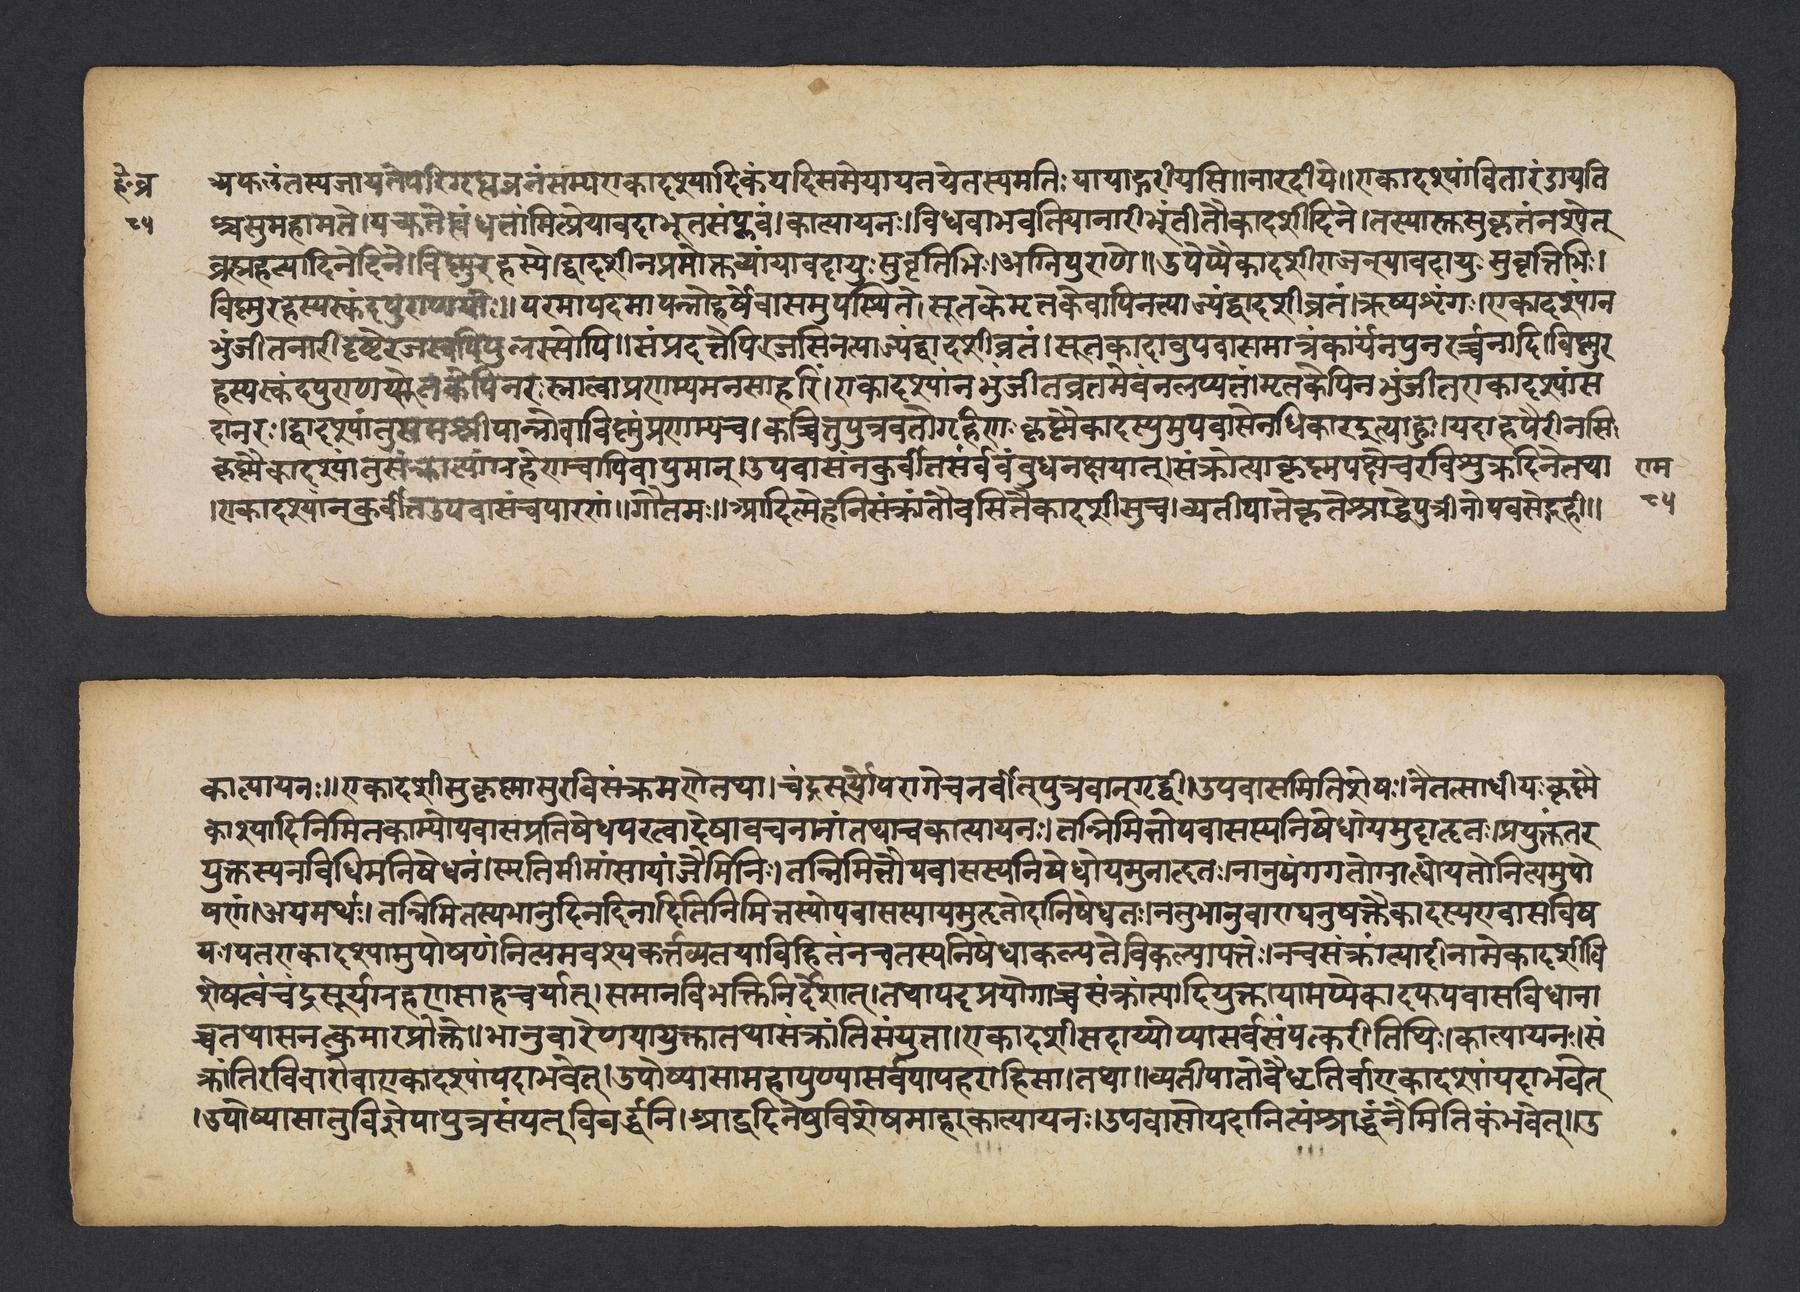 हे॰व्र
८५
त्र्यफलंतस्यजायतेपरिगृह्यव्रतंसम्यगएकादश्यादिकं यदिसमेयायतयेतस्यमतिः पापाद्गरीयसि॥नारदीये॥एकादश्यांवितारंडायति
श्चसुमहामते।पच्यतेह्यंधतामिस्रेयावदाभूतसंप्लवं।कात्यायनः।विधवाभवतियानारीभुंतीतैकादशीदिने।तस्यास्तसुकृतंनश्येत्
व्रह्महत्यादिनेदिने।विष्णुरहस्ये।द्वादशीनप्रमोक्तव्यायावदायुःसुवृतिभिः।अग्निपुराणे॥उपेप्यैकादशीराजन्यावदायुःसुवृत्तिभिः।
विष्णुरहेस्यस्कंदपुराणयोः॥परमापदमापन्नोहर्षेवासमुपस्थिते।सूतकेमृतकेवापिनत्याज्यंद्वादशीव्रतं।ऋष्यशृंगः।एकादश्यांन
भुंजीतनारीदृष्टेरजस्यपिपुलस्त्योपि॥संप्रदत्तेपिरजसिनत्याज्यंद्वादशीव्रतं।सूतकादावुपवासमात्रंकार्यंनपुनरर्च्चनादि।विष्णुर
हस्यस्कंदपुराणयोःतकेपिनरःस्नात्वाप्रणम्यमनसाहरिं।एकादश्यांनभुंजीतव्रतमेवंनलप्यते।मृतकेपिनभुंजीतएकादश्यांस
दानरः।द्वादश्यांतुसमश्नीयात्स्नात्वाविष्णुंप्रणम्यच।कच्चित्तुपुत्रवतोगृहिणःकृष्णैकादस्युमुपवासेनधिकारदुत्याहुः।यदाहपैरीनसिः
कृष्णैकादश्यांतुसंक्रांत्यांग्रहेणच्चापिवापुमान्।उपवासंनकुर्वीतसर्वबंधुधनक्षयात्।संक्रांत्याकृष्णपक्षेचरविशुक्रदिनेतथा
।एकादश्यांनकुर्वीतउपवासंच्चपारणं॥गौतमः॥आदित्येहनिसंक्रांतौवसितैकादशीसुच।व्यतीपातेकृतेश्राद्धेपुत्रीनोपवसेद्गृही॥
राम
८५
कात्यायनः॥एकादशीसुकृष्णासुरविसंक्रमणेतथा।चंद्रसूर्योपरागेचनर्वीतपुत्रवान्गृही।उपवासमितिशेषः।नैतत्साधीयःकृष्णै
काश्यादिनिमितकाम्योपवासप्रतिषेधपरत्वादेषावचनानांतथाचकात्यायनः।तन्निमित्तोपवासस्यनिषेधोयमुदाहृतः।प्रयुक्तंतर
युक्तस्यनविधिमनिषेधनं।स्मृतिमीमांसायांजैमिनिः।तन्निमित्तोपवासस्यनिषेधोयमुनाहृतः।नानुषंगगतोग्राह्योयतोनित्यमुपो
षणं।अयमर्थः।तन्निमितस्यभानुदिनदिनादितिनिमित्तस्योपवासस्यायमुहृतोदानिषेधृतः।नतुभानुवाराघनुषक्तैकादस्यएवासविष
यः।यतएकादश्यामुपोषणंनित्यमवश्यकर्त्तव्यतयाविहितंनचतस्यनिषेधाकल्पतेविकल्पापत्तेः।नचसंक्रांत्यादीनामेकादशीवि
शेषत्वंचंद्रसूर्यग्रहणसाहचर्यात्।समानविभक्तिनिर्देशात्।तथापदप्रयोगाच्चसंक्रांत्यादियुक्तायामप्येकादफपवासविधाना
च्चतथासनत्कुमारप्रोक्ते॥भानुवारेणयायुक्तातथासंक्रांतिसंयुता।एकादशीसदाय्योप्यासर्वसंपत्करीतिथिः।कात्यायनः।सं
क्रांतिरविवारोवाएकादश्यांयदाभवेत्।उपोष्यासामहापुण्यासर्वपापहराहिसा।तथा॥व्यतीपातोवैधृतिर्वाएकादश्यांयदाभवेत्
।उपोष्यासातुविज्ञेयापुत्रसंपत्विवर्द्धनि।श्राद्धदिनेषुविशेषमाहाकात्यायनः।उपवासोयदानित्यंश्राद्धंनैमितिकंभवेत्।उ